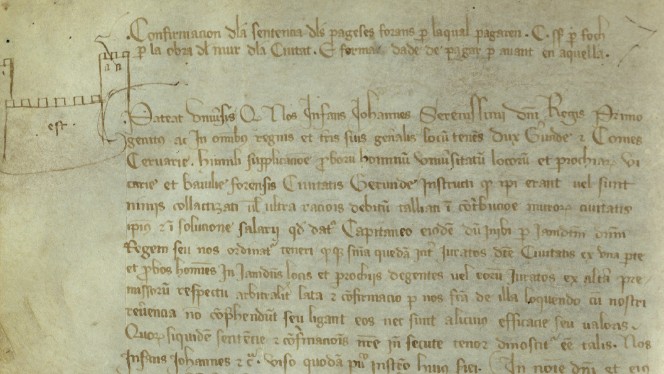 Confirmacion dla sentencia dls pageses forans p laqual pagaren . C . ss p foch
p la obra dl mur dla Ciutat . E forma dada de pagar p auant en aquella .
est
Pateat vniusis Q Nos Infans Johannes Serenissimi dni Regis Primo
genitus ac In omibz regnis et tris suis genalis locu tenes Dux Gerunde & Comes
Ceruarie . Humili supplicacoe pborum hominum vniusitatu locorum et prochiar Vi
carie et baiulie forensis Ciuitatis Gerunde Instructi qd ipi erant uel sunt
nimis collectati ul ultra racois debitum talliati i cotbucoe muror ciuitatis
ipius & i solucione salarij qd dat Capitaneo eiusdem dni inibi p iamdcm dnm
Regem seu nos ordinat teneri sniam quedam int Iuratos dce Ciuitatis ex vna pte
et pbos homies In iamdictis locis et prochijs degentes uel eorum Iuratos ex altera pre
missorum respectu arbitralit lata & cofirmacio p nos fca de illa loquendo cu nostri
reuerencia no cophendunt seu ligant eos nec sunt alicuius efficacie seu valoris .
Quorum siquidem sentencie & cofirmacois inseccute tenor dinoscit ee talis . Nos
Infans Johannes & c . viso quodam instco huius seriei . In noie dni et eius